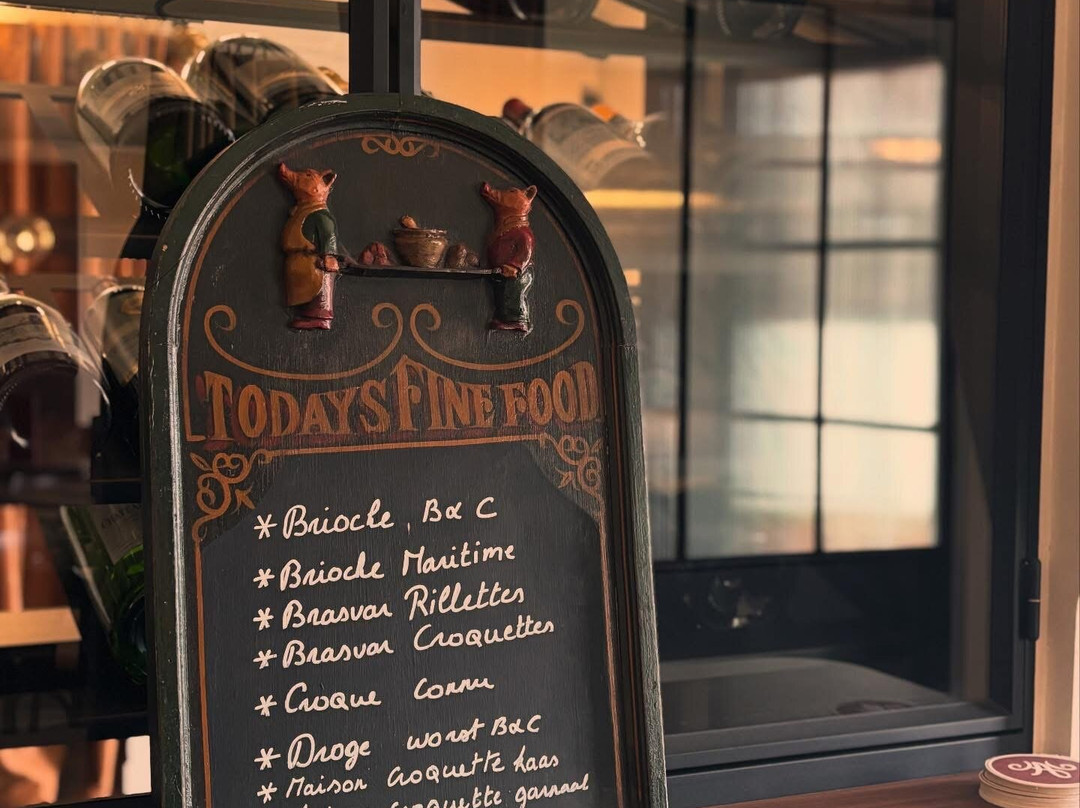 TODAYS FINE FOOD
* Brioche, B&C
* Brioche Maritime
* Brasvar Rillettes
* Brasvar Croquettes
* Croque Cornu
* Droge worst B&C
* Maison Croquette kaas
Croquette garnaal